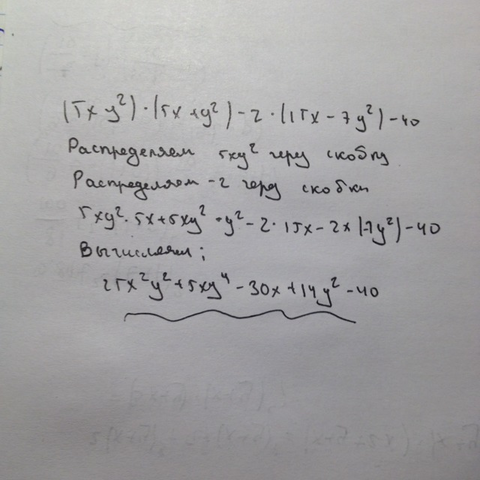 (5x y²)·(5x+y²)-2·(15x-7y²)-40
Распределяем 5xy² через скобку
Распределяем -2 через скобки
5xy²·5x+5xy²·y²-2·15x-2x(7y²)-40
Вычисляем;
25x²y²+5xy⁴-30x+14y²-40